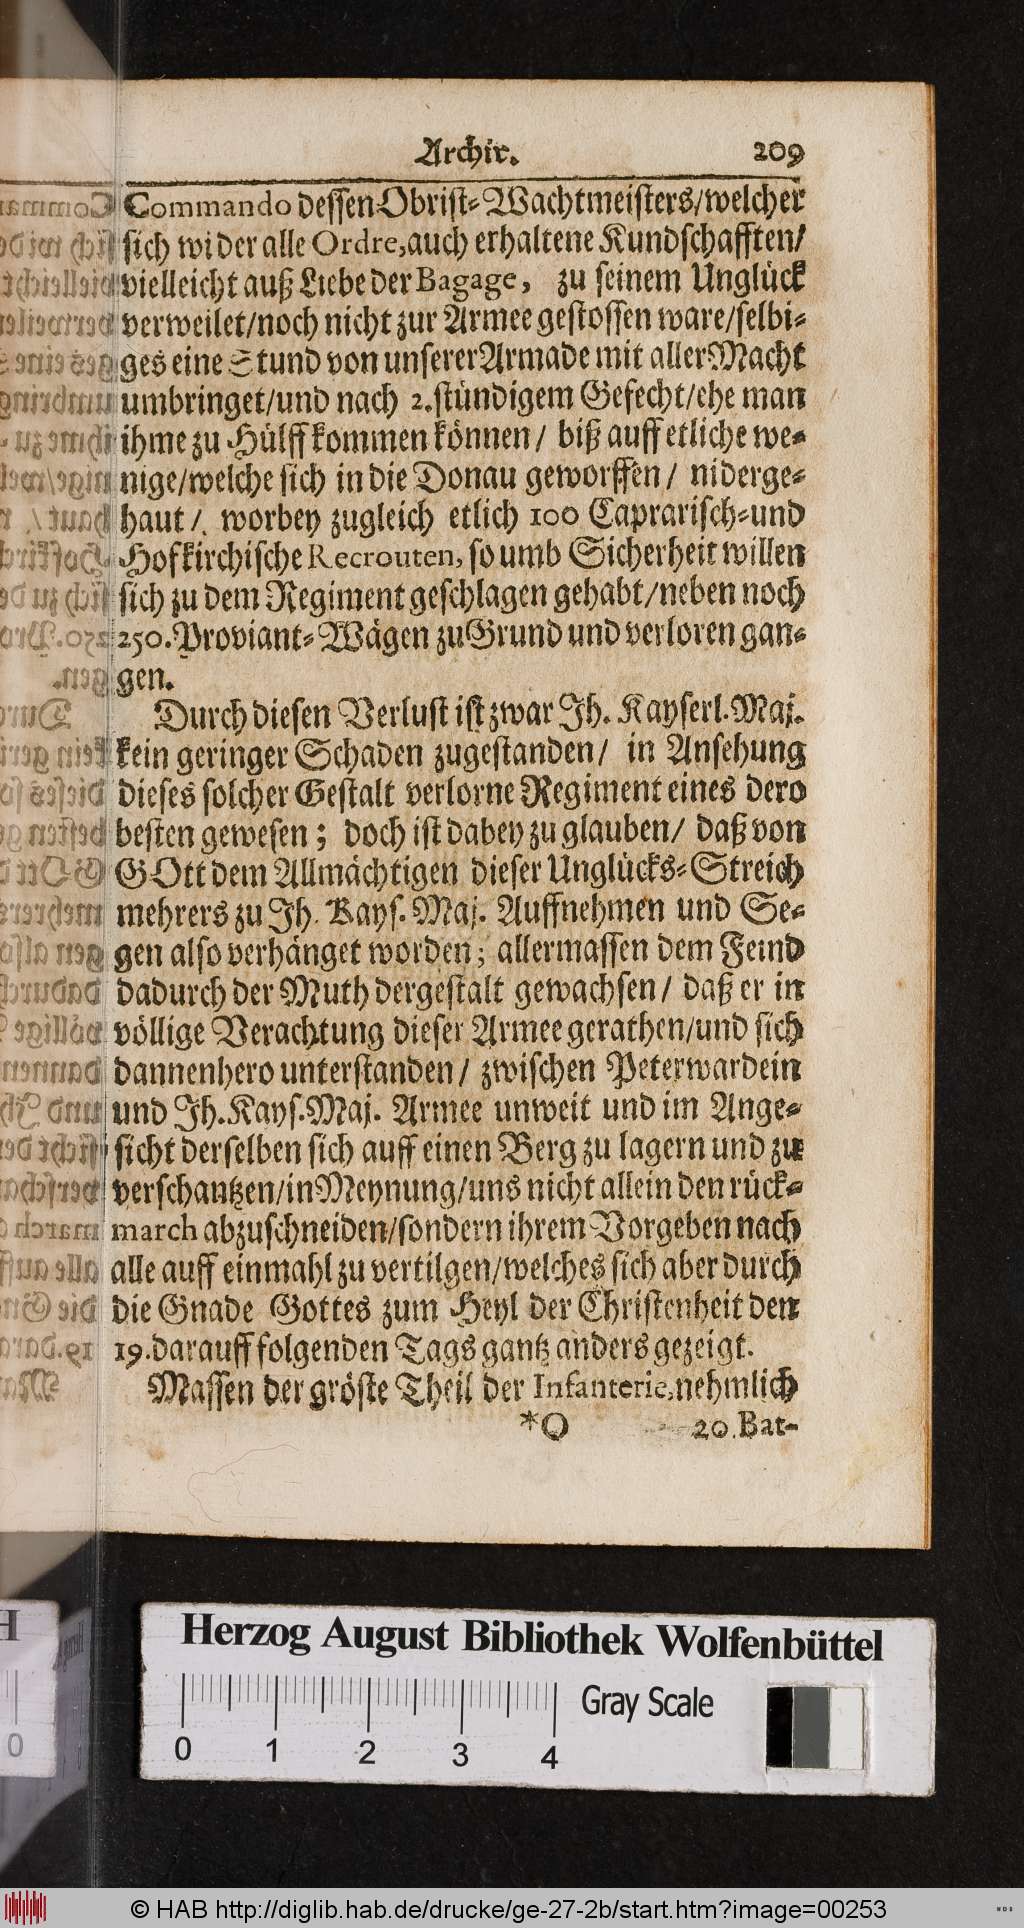 Archiv. 209
Commando dessen Obrist-Wachtmeisters/welcher
sich wider alle Ordre, auch erhaltene Kundschafften/
vielleicht auß Liebe der Bagage, zu seinem Unglück
verweilet/noch nicht zur Armee gestossen ware/selbi-
ges eine Stund von unserer Armade mit aller Macht
umbringet/und nach 2.stündigem Gefecht/ehe man
ihme zu Hülff kommen können/ biß auff etliche we-
nige/welche sich in die Donau geworffen/ niderge-
haut/ worbey zugleich etlich 100 Caprarisch-und
Hofkirchische Recrouten, so umb Sicherheit willen
sich zu dem Regiment geschlagen gehabt/neben noch
250. Proviant-Wägen zu Grund und verloren gan-
gen.
Durch diesen Verlust ist zwar Ih. Kayserl. Maj.
kein geringer Schaden zugestanden/ in Ansehung
dieses solcher Gestalt verlorne Regiment eines dero
besten gewesen; doch ist dabey zu glauben/ daß von
GOtt dem Allmächtigen dieser Unglücks-Streich
mehrers zu Ih. Kays. Maj. Auffnehmen und Se-
gen also verhänget worden; allermassen dem Feind
dadurch der Muth dergestalt gewachsen/ daß er in
völlige Verachtung dieser Armee gerathen/und sich
dannenhero unterstanden/ zwischen Peterwardein
und Ih. Kays. Maj. Armee unweit und im Ange-
sicht derselben sich auff einen Berg zu lagern und zu
verschantzen/in Meynung/uns nicht allein den rück-
march abzuschneiden/sondern ihrem Vorgeben nach
alle auff einmahl zu vertilgen/welches sich aber durch
die Gnade Gottes zum Heyl der Christenheit den
19. darauff folgenden Tags gantz anders gezeigt.
Massen der gröste Theil der Infanterie, nehmlich
*O 20. Bat-
Herzog August Bibliothek Wolfenbüttel
Gray Scale
0 1 2 3 4
© HAB http://diglib.hab.de/drucke/ge-27-2b/start.htm?image=00253